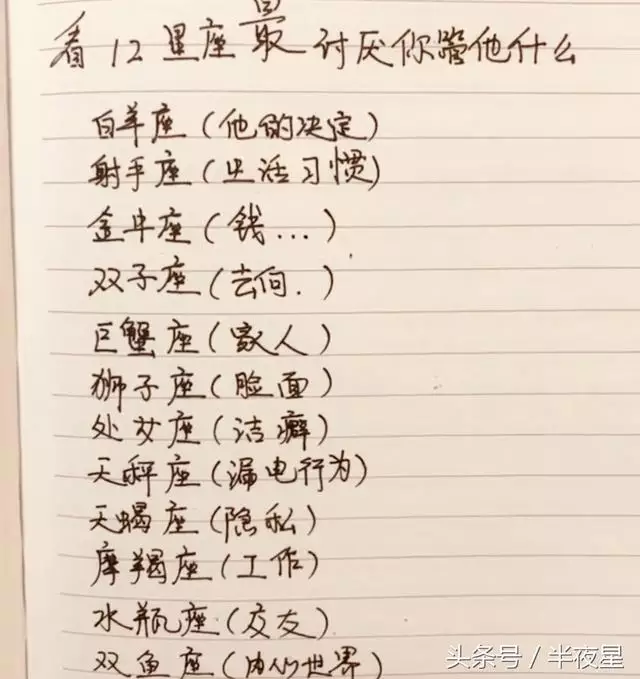 看12星座最讨厌你管他什么
白羊座(他的决定)
射手座(生活习惯)
金牛座(钱...)
双子座(去向.)
巨蟹座(家人)
狮子座(脸面)
处女座(洁癖)
天秤座(漏电行为)
天蝎座(隐私)
摩羯座(工作)
水瓶座(交友)
双鱼座(内心世界)
头条号/半夜星